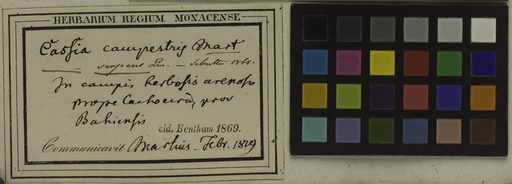 HERBARIUM REGIUM MONACENSE
Cassia campestris Mart
serpens Lin.
In campis herbosis arenosis
prope Cachoeira, prov
Bahiensis
vid. Bentham 1869.
Communicavit Martius. Febr. 1829